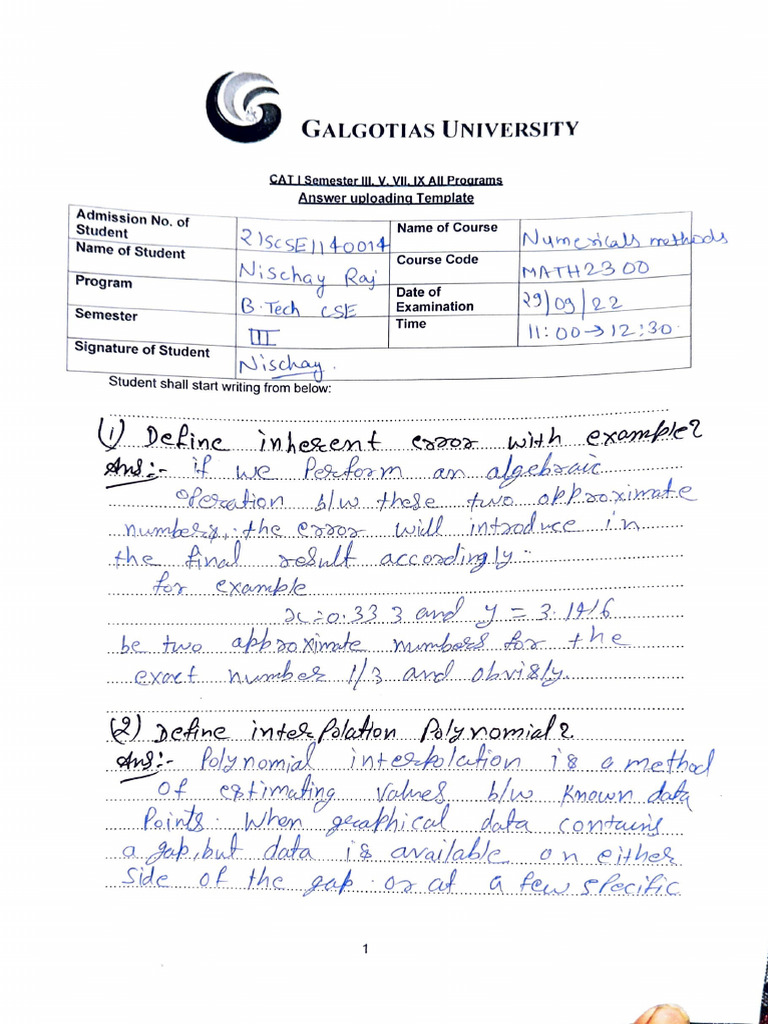 GALGOTIAS UNIVERSITY
CAT I Semester III, V, VII, IX All Programs
Answer uploading Template
Admission No. of Student 21SCSE1140014 Name of Course Numericals methods
Name of Student Nischay Raj Course Code MATH2300
Program B.Tech CSE Date of Examination 29/09/22
Semester III Time 11:00→12:30
Signature of Student Nischay.
Student shall start writing from below:
(1) Define inherent error with example?
Ans:- if we Perform an algebraic
operation b/w these two approximate
numbers, the error will introduce in
the final result accordingly.
for example
x=0.333 and y = 3.1416
be two approximate numbers for the
exact number 1/3 and obvisly.
(2) Define interpolation Polynomial?
Ans:- Polynomial interpolation is a method
of estimating values b/w known data
Points. When graphical data contains
a gap, but data is available on either
side of the gap or at a few specific
1